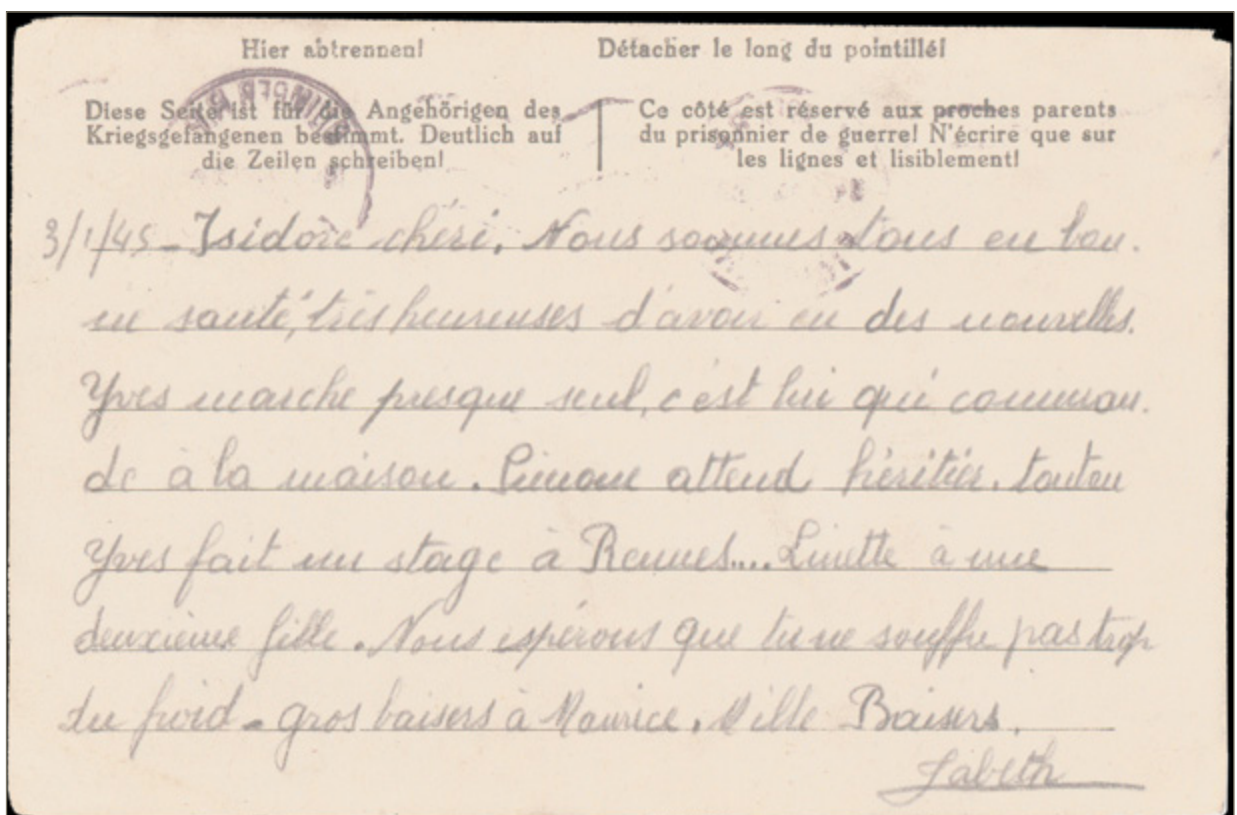 Hier abtrennen! Détacher le long du pointillé!
Diese Seite ist für die Angehörigen des
Kriegsgefangenen bestimmt. Deutlich auf
die Zeilen schreiben!
Ce côté est réservé aux proches parents
du prisonnier de guerre! N'écrire que sur
les lignes et lisiblement!
3/1/45 - Isidore chéri. Nous sommes tous en bon.
ne santé, très heureuses d'avoir eu des nouvelles.
Yves marche presque seul, c'est lui qui comman.
de à la maison. Simone attend héritier. tonton
Yves fait un stage à Rennes.... Linette à une
deuxième fille. Nous espérons que tu ne souffre pas trop
du froid - gros baisers à Maurice. Mille Baisers.